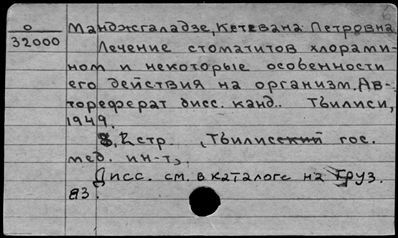 о
32000
Манджгаладзе, Кетевана Петровна
Лечение стоматитов хлорами-
ном и некоторые особенности
его действия на организм. Ав-
тореферат дисс. канд. Тбилиси,
1949.
8, 2 стр. (Тбилисский гос.
мед. ин-т).
Дисс. см. в каталоге на груз.
яз.